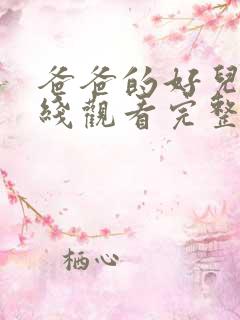 爸爸的好兒
綫觀看完整
栖心